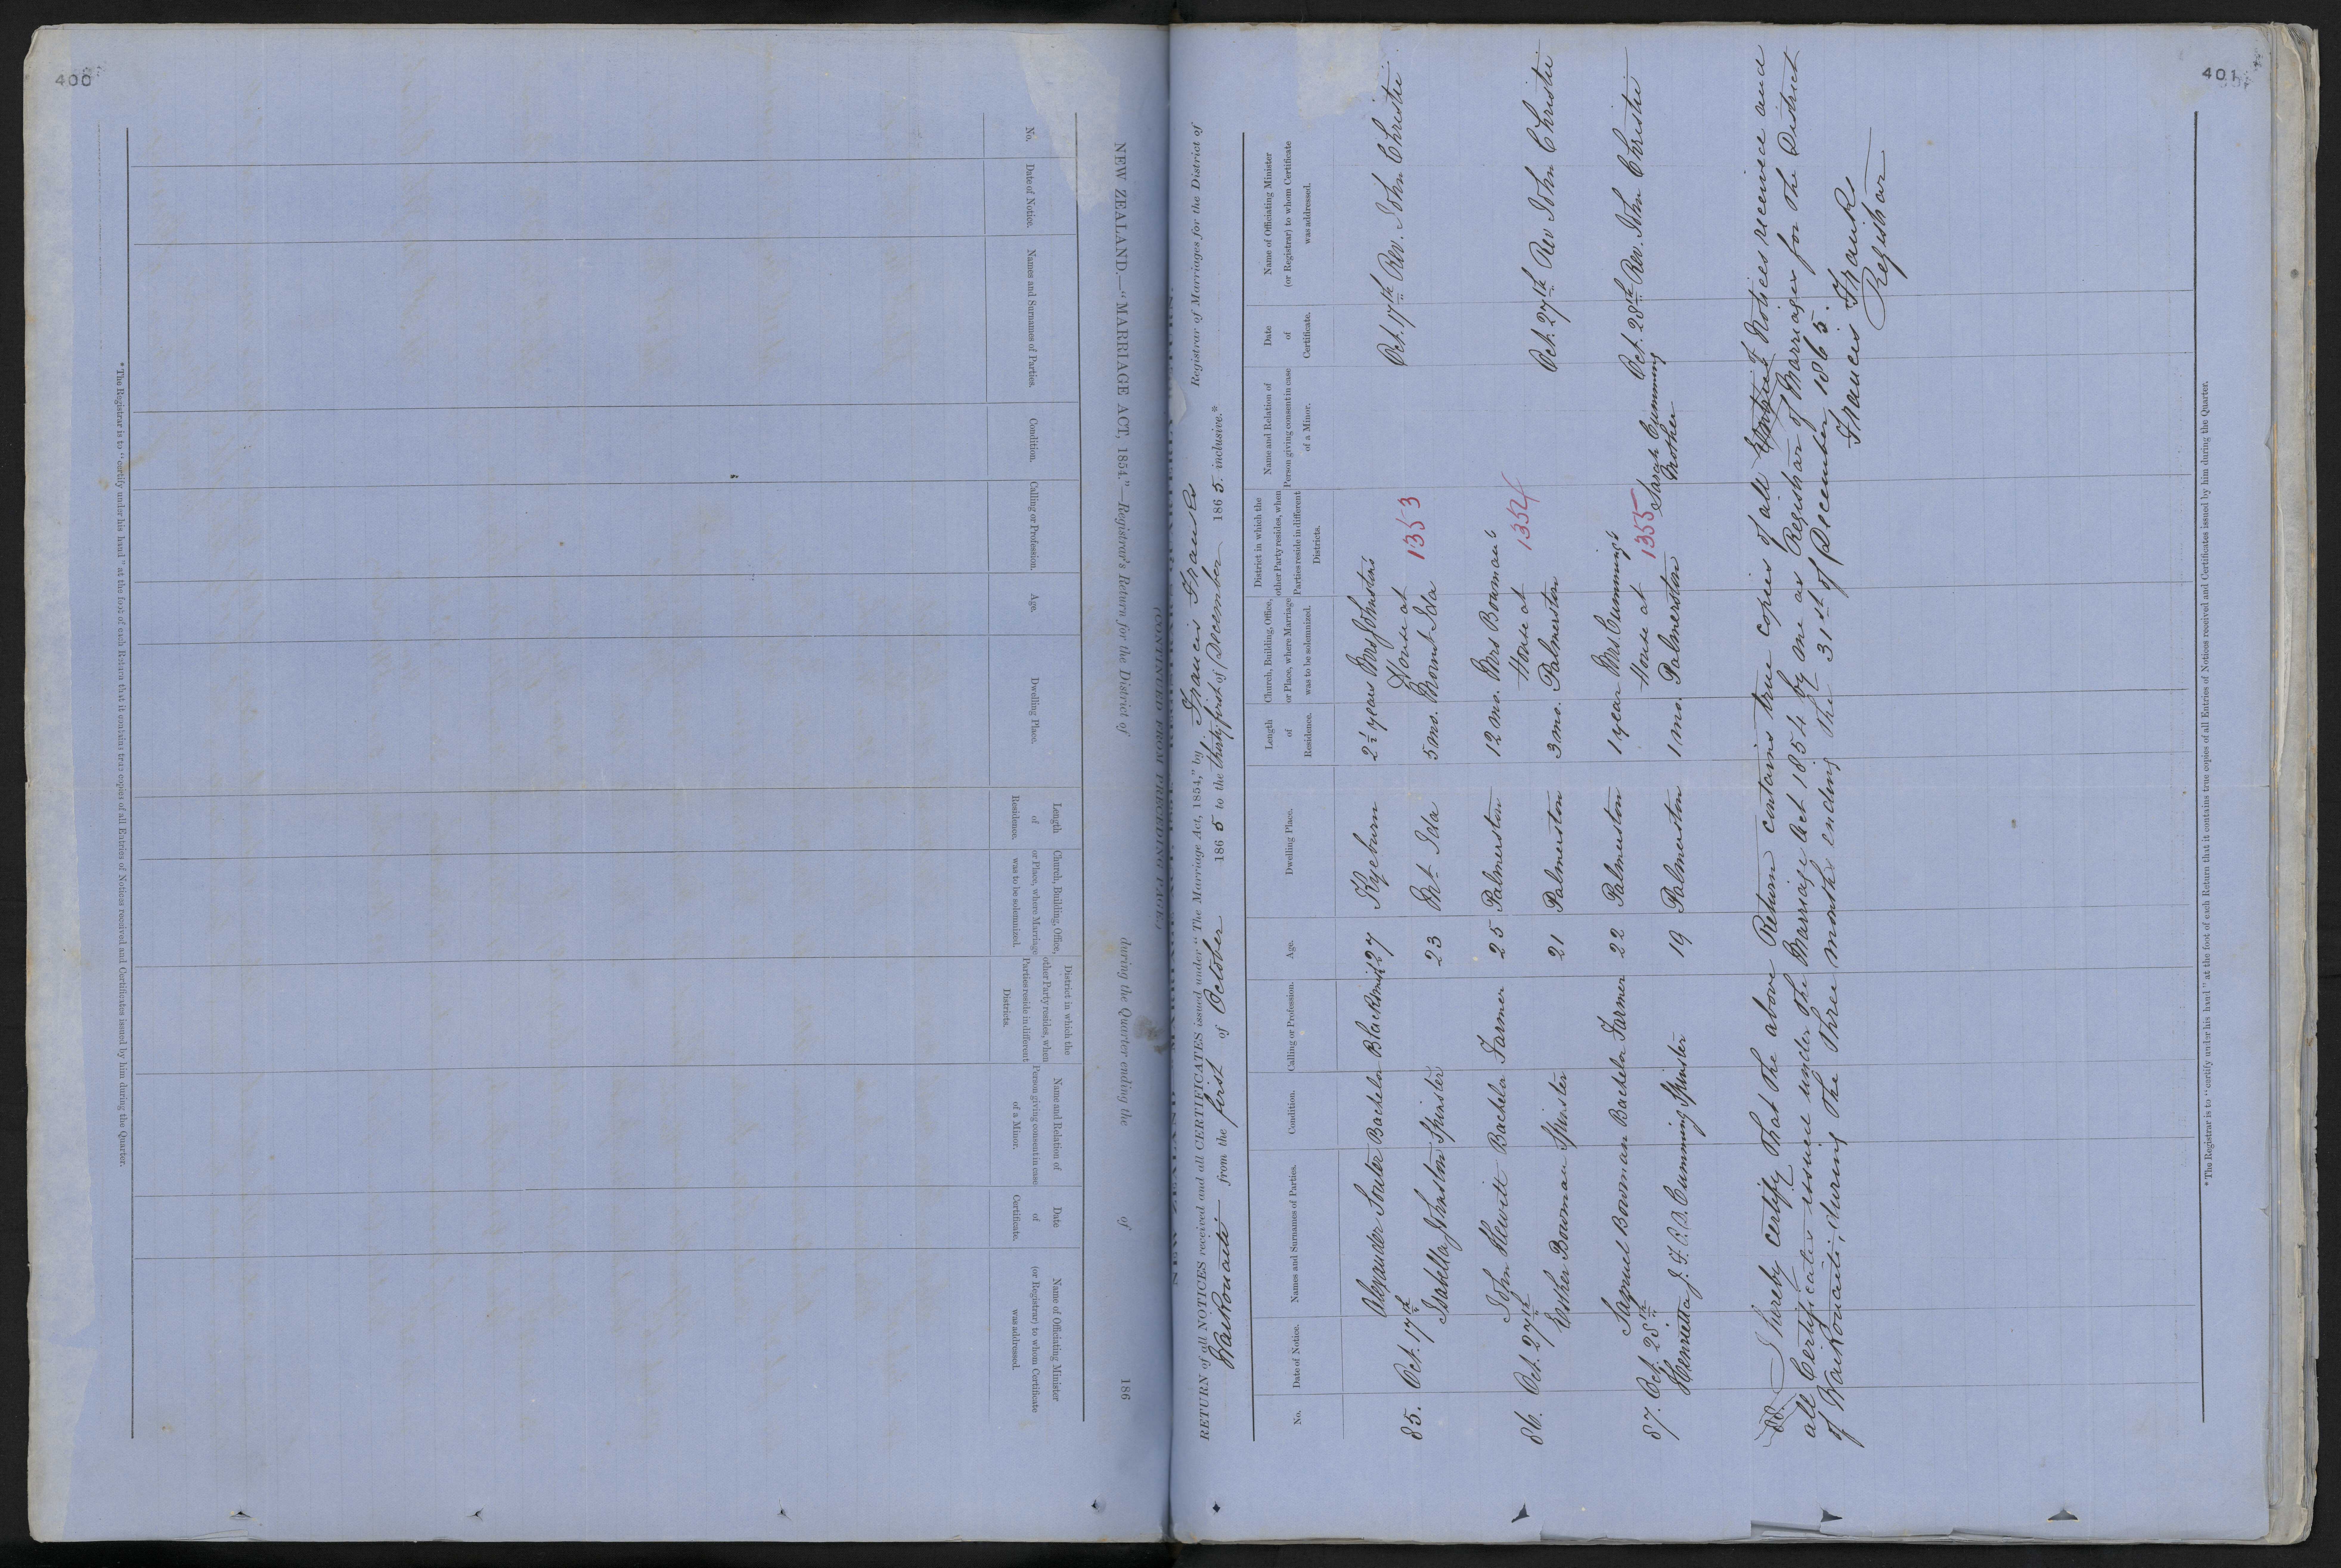 400
NEW ZEALAND.—"MARRIAGE ACT, 1854."—Registrar's Return for the District of during the Quarter ending the of 186
(CONTINUED FROM PRECEDING PAGE.)
No.
Date of Notice.
Names and Surnames of Parties.
Condition.
Calling or Profession.
Age.
Dwelling Place.
Length
of
Residence.
Church, Building, Office,
or Place, where Marriage
was to be solemnized.
District in which the
other Party resides, when
Parties reside in different
Districts.
Name and Relation of
Person giving consent in case
of a Minor.
Date
of
Certificate.
Name of Officiating Minister
(or Registrar) to whom Certificate
was addressed.
* The Registrar is to "certify under his hand" at the foot of each Return that it contains true copies of all Entries of Notices received and Certificates issued by him during the Quarter.
401
RETURN of all NOTICES received and all CERTIFICATES issued under "The Marriage Act, 1854," by Francis Franks Registrar of Marriages for the District of
Waikouaiti from the first of October 1865 to the thirty first of December 1865. inclusive.*
No.
Date of Notice.
Names and Surnames of Parties.
Condition.
Calling or Profession.
Age.
Dwelling Place.
Length
of
Residence.
Church, Building, Office,
or Place, where Marriage
was to be solemnized.
District in which the
other Party resides, when
Parties reside in different
Districts.
Name and Relation of
Person giving consent in case
of a Minor.
Date
of
Certificate.
Name of Officiating Minister
(or Registrar) to whom Certificate
was addressed.
Alexander Souter Bachelor Blacksmith 27 Kyeburn 2½ years Mrs Johnston's Oct. 17th Rev. John Christie
85. Oct. 17th House at
Isabella Johnston Spinster 23 Mt. Ida 5 mo. Mount Ida 1353
John Hewitt Bachelor Farmer 25 Palmerston 12 mo. Mrs Bowman's
86. Oct. 27th House at 1354 Oct. 27th Rev John Christie
Esther Bowman Spinster 21 Palmerston 3 mo. Palmerston
Samuel Bowman Bachelor Farmer 22 Palmerston 1 year Mrs. Cumming's
87. Oct. 28th House at 1355 Sarah Cumming Oct. 28th Rev. John Christie
Henrietta J. F. C. D. Cumming Spinster 19 Palmerston 1 mo. Palmerston Mother
I hereby certify that the above Return contains true copies of all Entries of Notices received and
all Certificates issued under the Marriage Act 1854 by me as Registrar of Marriages for the District
of Waikouaiti, during the three months ending the 31st of December 1865.
Francis Franks
Registrar
* The Registrar is to "certify under his hand" at the foot of each Return that it contains true copies of all Entries of Notices received and Certificates issued by him during the Quarter.